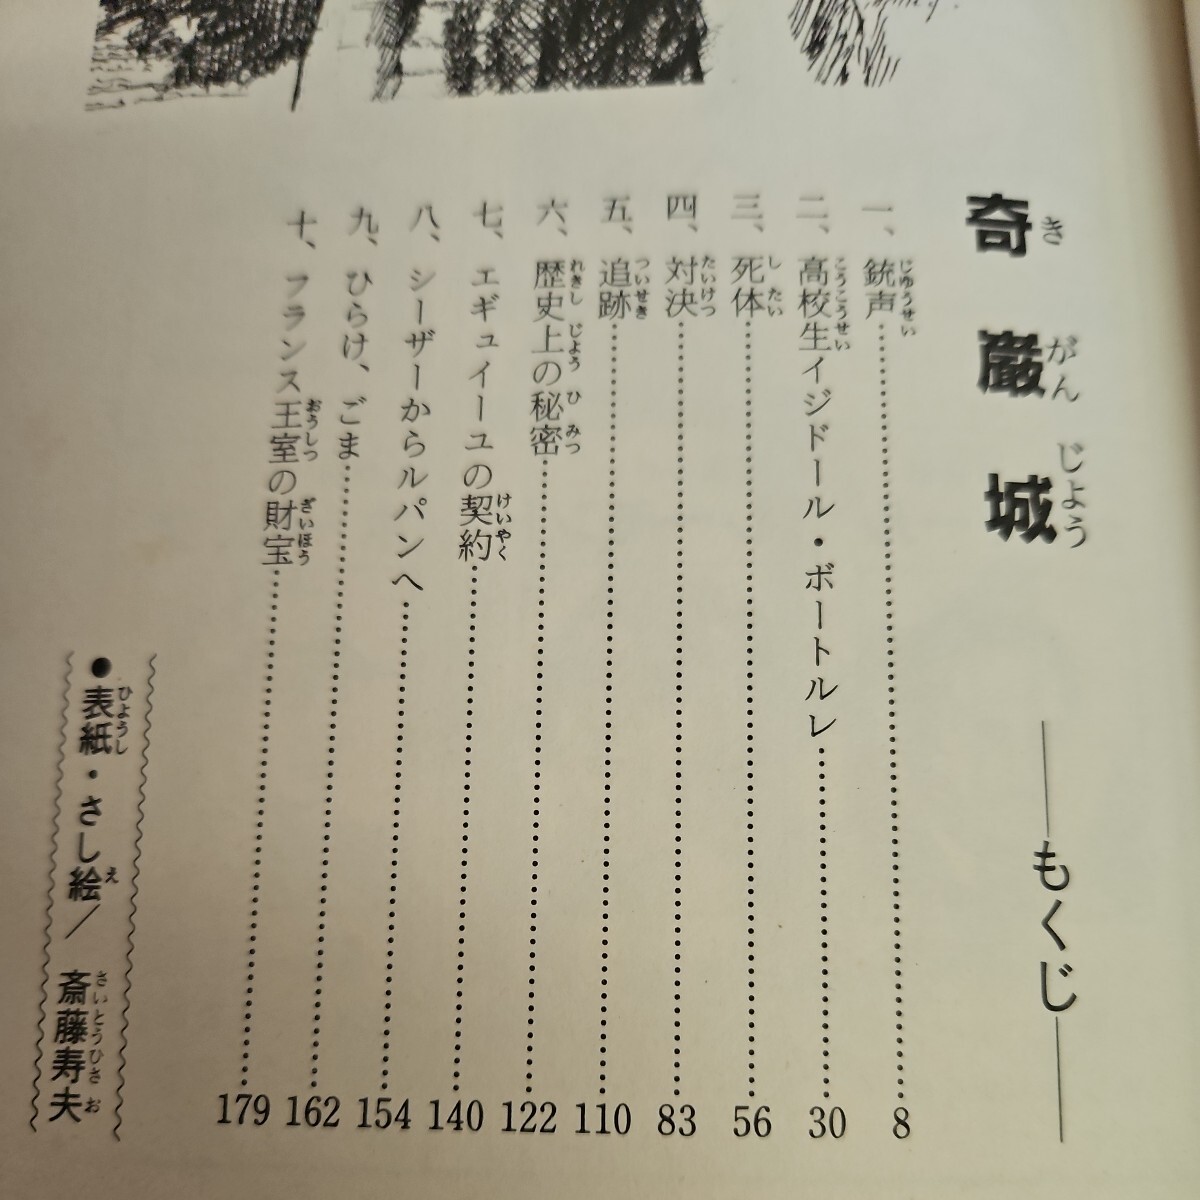 奇巌城
きがんじよう
――もくじ――
一、銃声……8
じゆうせい
二、高校生イジドール・ボートルレ……30
こうこうせい
三、死体……56
したい
四、対決……83
たいけつ
五、追跡……110
ついせき
六、歴史上の秘密……122
れきしじようひみつ
七、エギュイーユの契約……140
けいやく
八、シーザーからルパンへ……154
九、ひらけ、ごま……162
十、フランス王室の財宝……179
おうしつざいほう
●表紙・さし絵／斎藤寿夫
ひようしえさいとうひさお